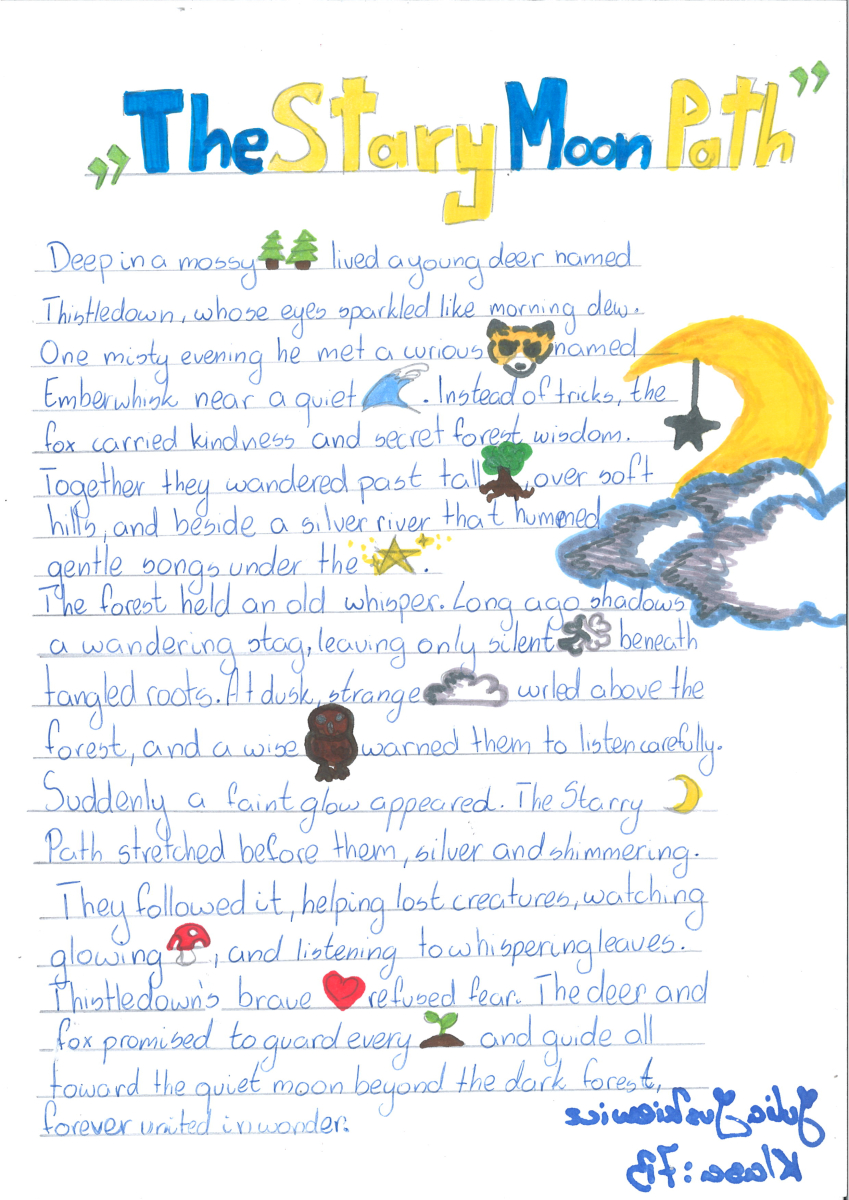 „The Stary Moon Path”
Deep in a mossy lived a young deer named
Thistledown, whose eyes sparkled like morning dew.
One misty evening he met a curious named
Emberwhisk near a quiet . Instead of tricks, the
fox carried kindness and secret forest wisdom.
Together they wandered past tall , over soft
hills, and beside a silver river that hummed
gentle songs under the .
The forest held an old whisper. Long ago shadows
a wandering stag, leaving only silent beneath
tangled roots. At dusk, strange wirled above the
forest, and a wise warned them to listen carefully.
Suddenly a faint glow appeared. The Starry
Path stretched before them, silver and shimmering.
They followed it, helping lost creatures, watching
glowing , and listening to whispering leaves.
Thistledown's brave refused fear. The deer and
fox promised to guard every and guide all
toward the quiet moon beyond the dark forest,
forever united in wonder.
Julia
Klasa: 7B